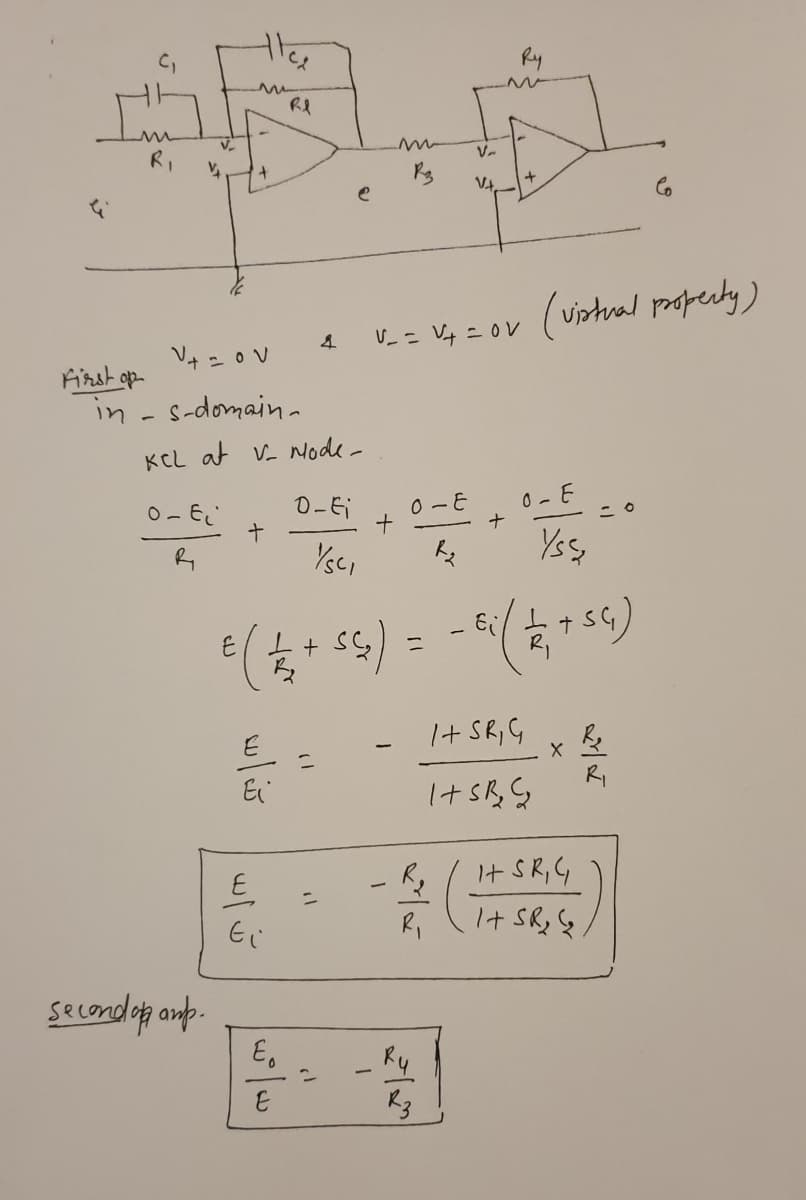 C₁
C₂
R₄
R₂
R₁
V₋
V₊
-
+
R₃
V₋
V₊
+
e
eᵢ
e₀
First op V₊ = 0V & V₋ = V₊ = 0V (virtual property)
in - s-domain -
KCL at V₋ Node -
(0 - Eᵢ)/R₁ + (0 - Eᵢ)/(1/SC₁) + (0 - E)/R₂ + (0 - E)/(1/SC₂) = 0
E(1/R₂ + SC₂) = - Eᵢ(1/R₁ + SC₁)
E/Eᵢ = - (1 + SR₁C₁)/(1 + SR₂C₂) × R₂/R₁
E/Eᵢ = - R₂/R₁ ((1 + SR₁C₁)/(1 + SR₂C₂))
second op amp.
E₀/E = - R₄/R₃